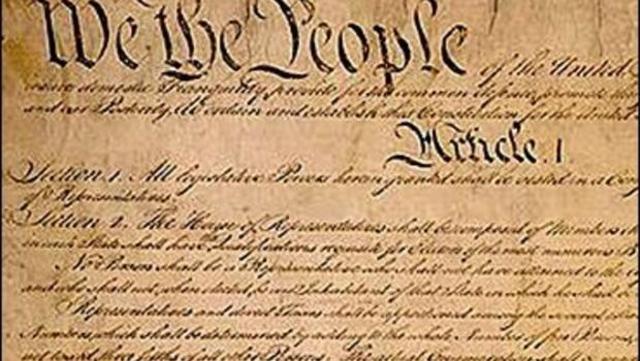 We the People of the United
insure domestic Tranquility, provide for the common defence, promote the
and our Posterity, do ordain and establish this Constitution for the United
Article. I.
Section. 1. All legislative Powers herein granted shall be vested in a Con
of Representatives.
Section. 2. The House of Representatives shall be composed of Members
in each State shall have Qualifications requisite for Electors of the most numerous
No Person shall be a Representative who shall not have attained to the
and who shall not, when elected, be an Inhabitant of that State in which he shall be
Representatives and direct Taxes shall be apportioned among the several
Numbers, which shall be determined by adding to the whole Number of free Persons,
not taxed, three fifths of all other Persons. The actual Enumeration